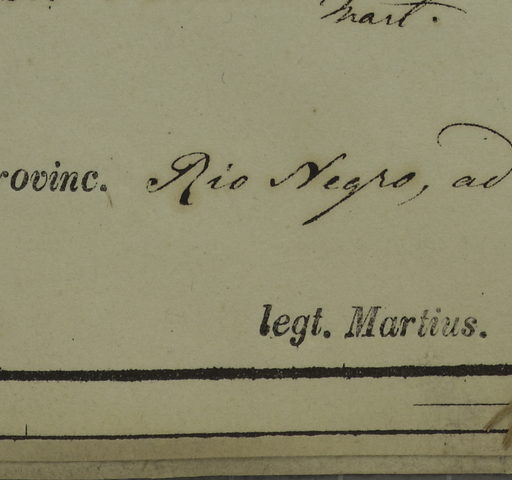 Mart.
rovinc. Rio Negro, ad
legt. Martius.